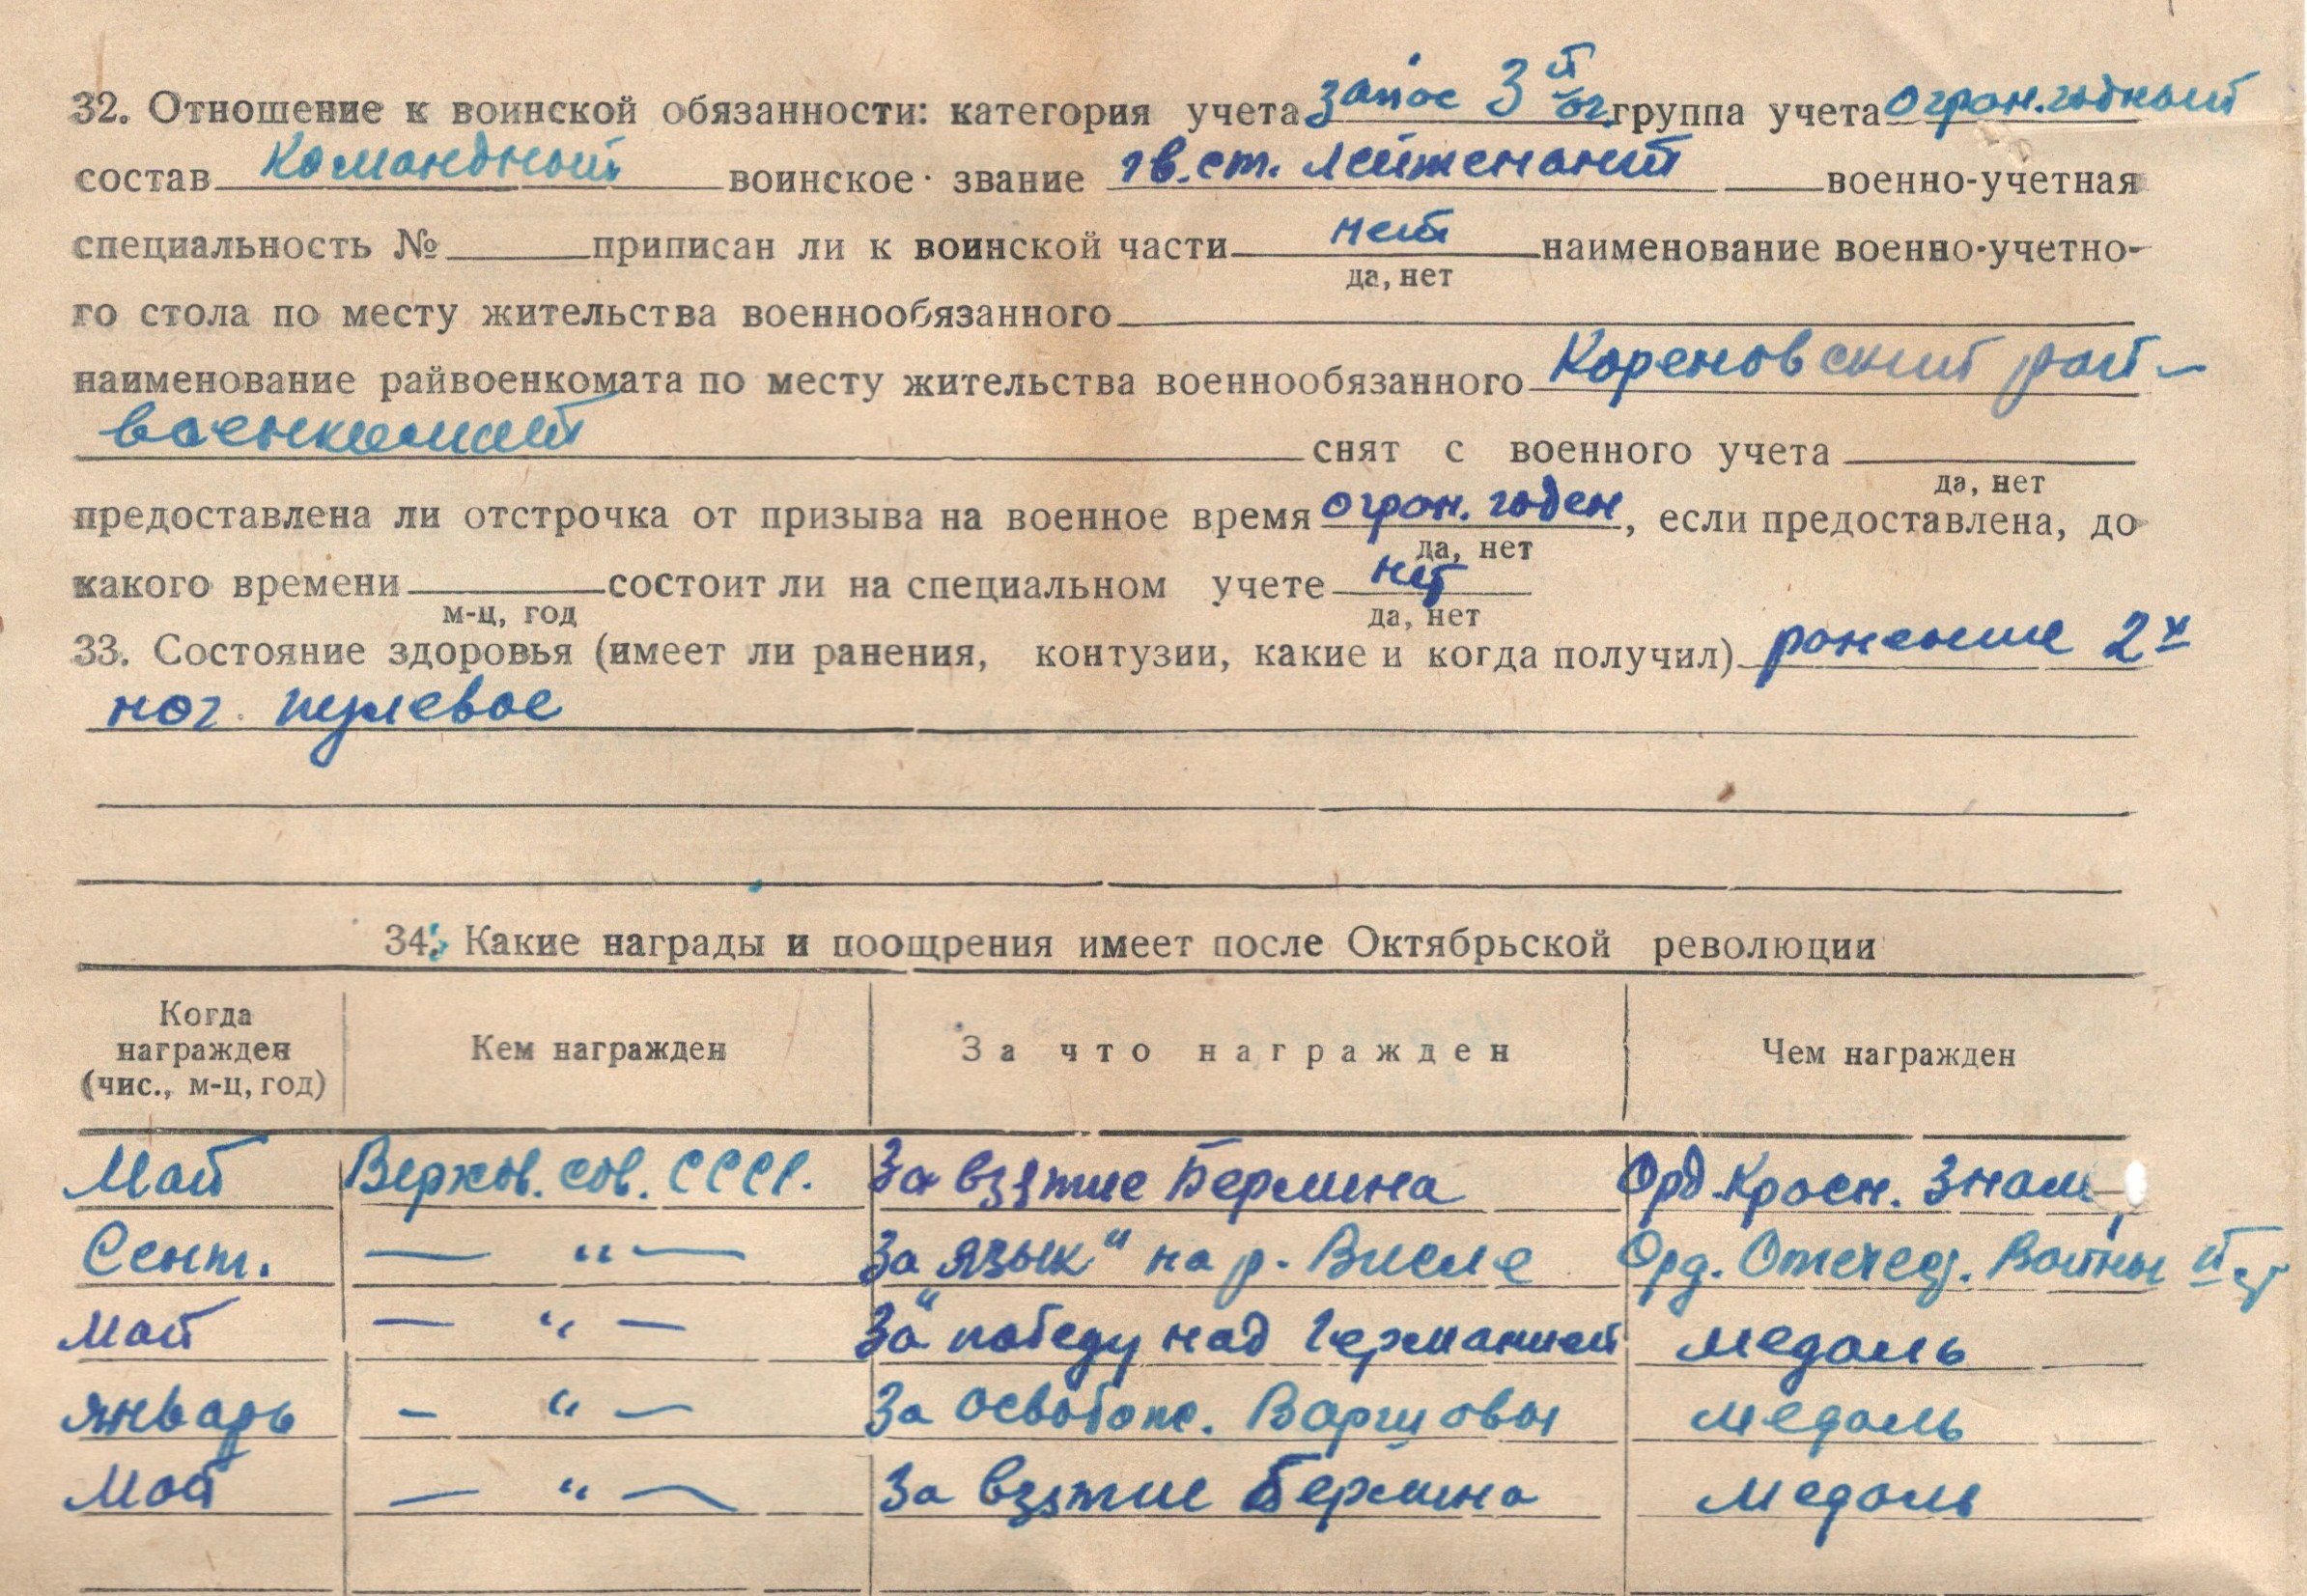 32. Отношение к воинской обязанности: категория учета запас 3й ог. группа учета огран. годный
состав Командный воинское звание гв. ст. лейтенант военно-учетная
специальность № приписан ли к воинской части нет наименование военно-учетно-
да, нет
го стола по месту жительства военнообязанного
наименование райвоенкомата по месту жительства военнообязанного Кореновский рай-
военкомат снят с военного учета
да, нет
предоставлена ли отстрочка от призыва на военное время огран. годен, если предоставлена, до
да, нет
какого времени состоит ли на специальном учете нет
м-ц, год да, нет
33. Состояние здоровья (имеет ли ранения, контузии, какие и когда получил) ранение 2х
ног пулевое
34. Какие награды и поощрения имеет после Октябрьской революции
Когда награжден (чис., м-ц, год) Кем награжден За что награжден Чем награжден
Май Верхов. сов. СССР. За взятие Берлина Орд. Красн. Знам.
Сент. — " — За „язык" на р. Висле Орд. Отечес. Войны II
Май — " — За "победу над Германией медаль
январь — " — За освобож. Варшавы медаль
Май — " — За взятие Берлина медаль